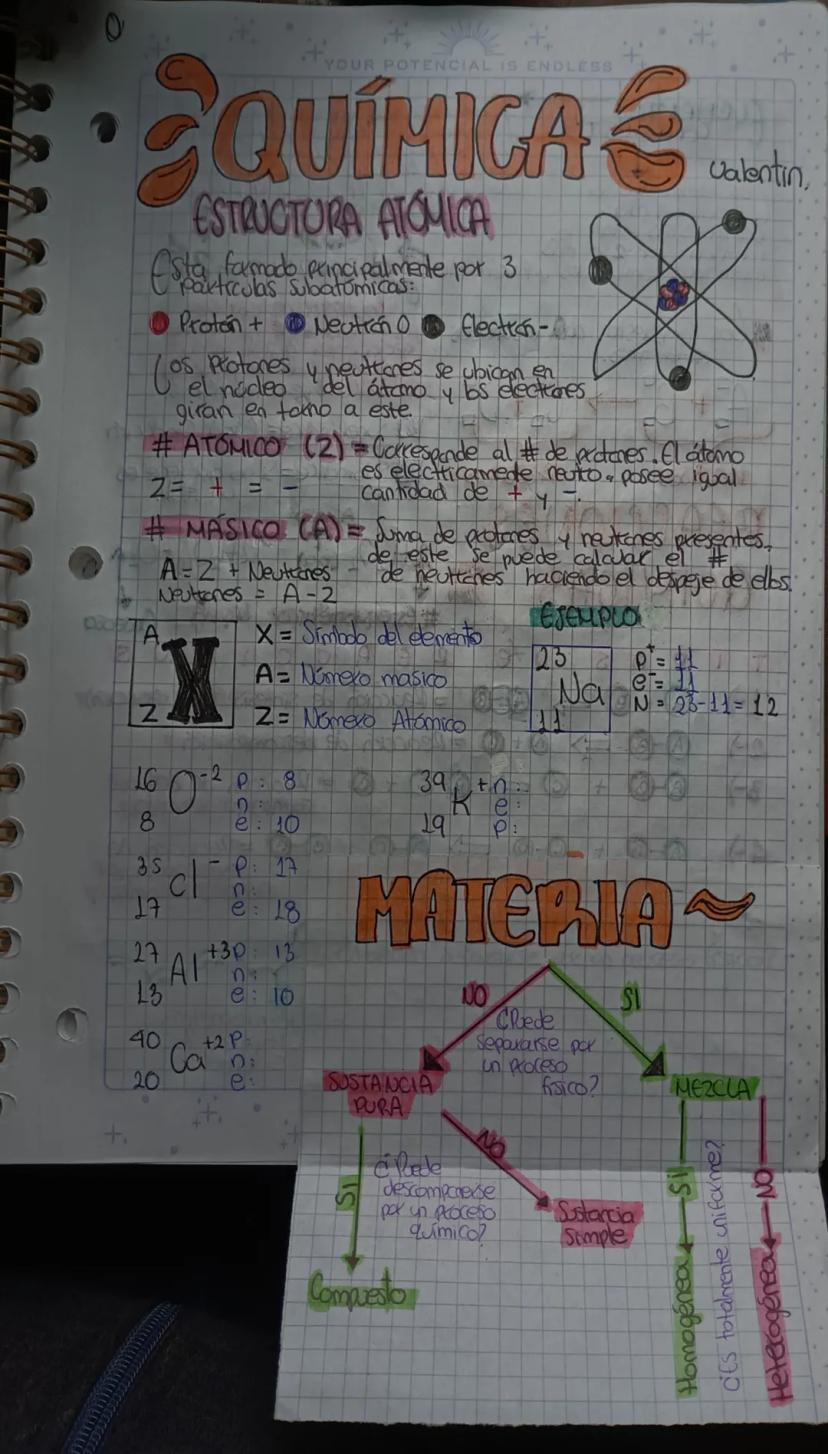 YOUR POTENCIAL IS ENDLESS
QUÍMICA
Valentin,
ESTRUCTURA ATÓMICA
Esta formado principalmente por 3
particulas subatómicas:
Protón + Neutrón 0 Electrón -
Los Protones y neutrones se ubican en
el núcleo del átomo y los electrones
giran en torno a este.
# ATÓMICO (Z) = Corresponde al # de protones. El átomo
es electricamente neutro. posee igual
Z = + = - cantidad de + y -.
# MÁSICO (A) = Suma de protones y neutrones presentes,
de este se puede calcular el #
A = Z + Neutrones de neutrones haciendo el despeje de ellos.
Neutrones = A - Z
A
X
Z
X = Símbolo del elemento
A = Número masico
Z = Número Atómico
EJEMPLO
23
Na
11
p+ = 11
e- = 11
N = 23-11 = 12
16 O-2 p: 8
n:
8 e: 10
39 K + n:
e:
19 p:
35 Cl - p: 17
n:
17 e: 18
27 Al +3 p: 13
n:
13 e: 10
40 Ca +2 p:
n:
20 e:
MATERIA ~
NO
SI
¿Puede
separarse por
un proceso
fisico?
SUSTANCIA
PURA
MEZCLA
SI
NO
¿Puede
descomponerse
por un proceso
químico?
Compuesto
Sustancia
simple
SI
¿Es totalmente uniforme?
NO
Homogénea
Heterogénea